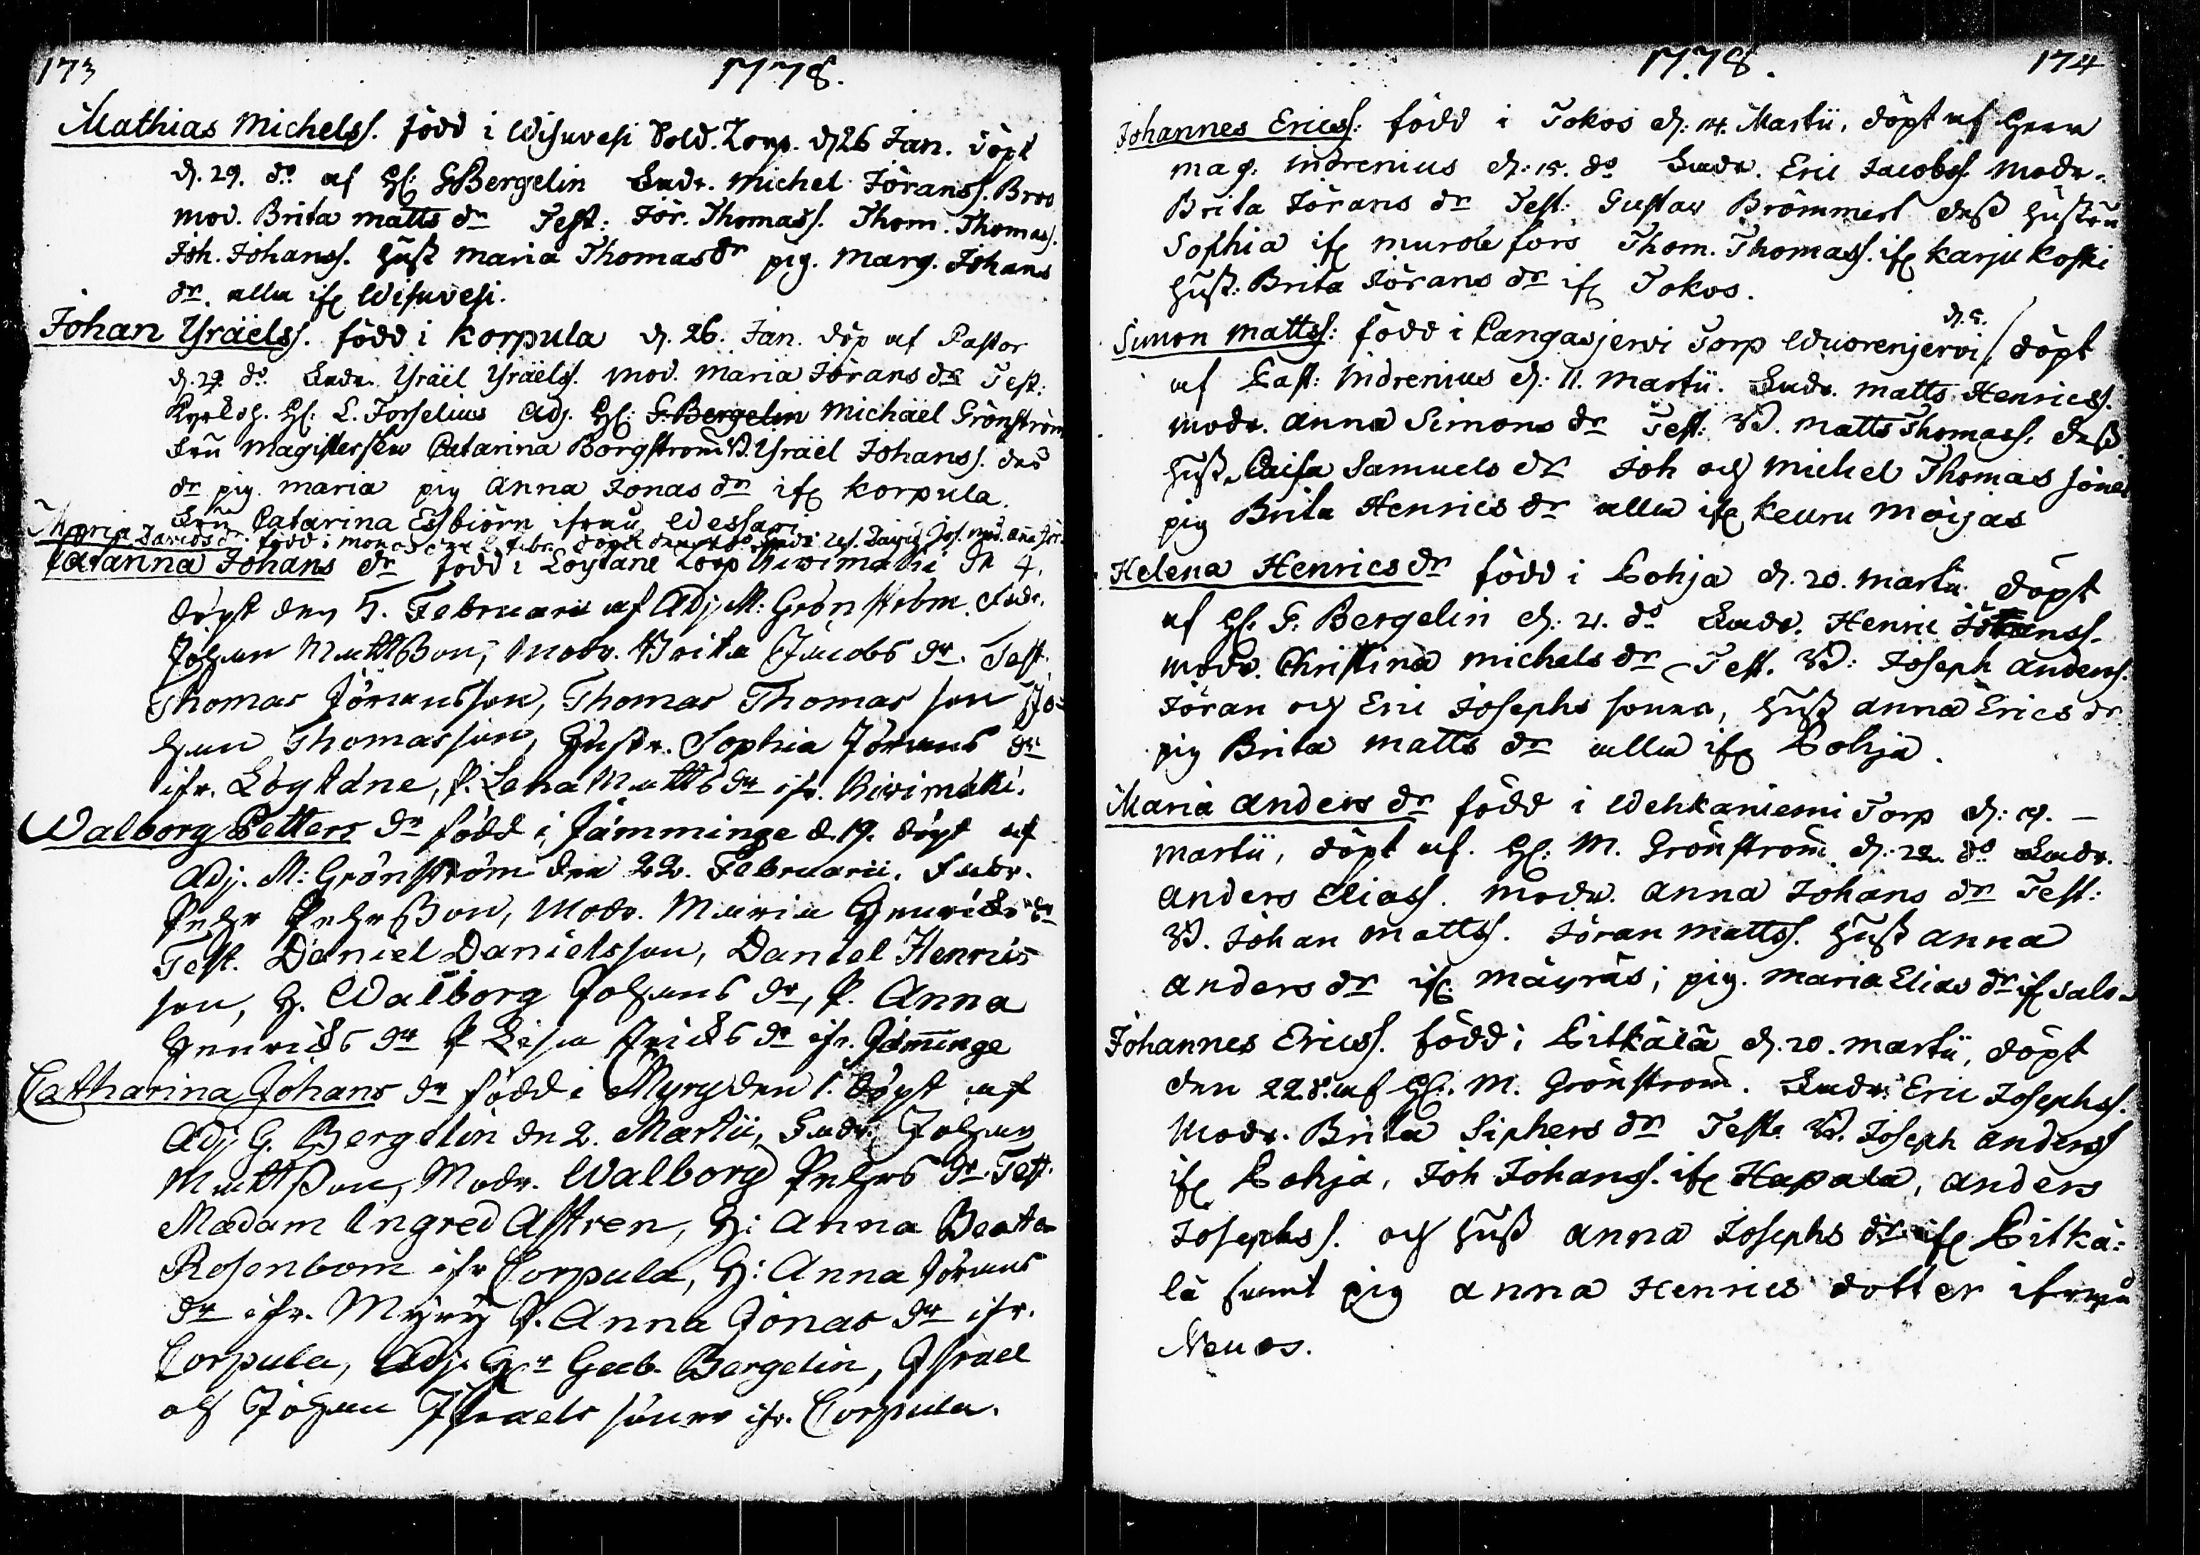 173
1778.
Mathias Michelss. född i Wisuvesi Sold. Torp. d. 26 Jan. döpt
d. 29. do af H: G Bergelin Fadr. Michel Jöranss. Bros
mod. Brita Matts dr Test: Jör. Thomass. Thom. Thomass.
Joh. Johanss. Hust Maria Thomasdr pig. Marg. Johans
dr. alla ifr Wisuvesi.
Johan Ysräelss. född i Korpula d. 26. Jan. döp af Pastor
d. 29. do. Fadr. Ysräil Ysräelss. mod. Maria Jörans dr Test:
H: L. Forselius Adj. H: G. Bergelin Michäel Grönström
Fru Magisterskan Catarina Borgström B. Ysräel Johanss. des
dr pig Maria pig Anna Jonas dr ifr Korpula.
Fru Catarina Essbiörn ifrån Wessari
Maria Davids dr. född i
Catarina Johans dr född i Löytäne Torp Kivimäki d. 4.
döpt den 5. Februarii af Adj. M: Grönström. Fadr.
Johan Mattsson, Modr. Brita Jacobs dr. Test.
Thomas Jöransson, Thomas Thomas son Jo-
han Thomasson, Hustr. Sophia Jörans dr
ifr. Löytäne, P. Lena Matts dr ifr. Kivimäki.
Walborg Petters dr född i Jämminge d. 19. döpt af
Adj. M: Grönström den 22. Februarii. Fadr.
Pehr Pehrsson, Modr. Maria Henricks dr
Test. Daniel Danielsson, Daniel Henrics
son, H. Walborg Johans dr, P. Anna
Henricks dr P Lisa Ericks dr ifr. Jäminge
Catharina Johans dr född i Myry den 1. döpt af
Adj G. Bergelin dn 2. Martii, Fadr. Johan
Mattsson, Modr. Walborg Pehrs dr. Test.
Madam Ingred Astren, H: Anna Beata
Rosenbom ifr Corpula, H: Anna Jörans
dr ifr. Myry P. Anna Jonas dr ifr.
Corpula, Adj. Hr Gab. Bergelin, Israel
och Johan Israels söner ifr. Corpula.
1778.
174
Johannes Ericss: född i Jokos d: 14. Martii, döpt af Herr
mag. Indrenius d: 15. do Fadr. Eric Jacobss. Modr.
Brita Jörans dr Test: Gustav Brömmert dess Hustru
Sophia ifr Murole fors Thom. Thomass. ifr Karjukoski
Hust: Brita Jörans dr ifr Jokos.
d. 5.
Simon Mattss: född i Cangasjerwi Torp Wuorenjerwi, döpt
af Past: Indrenius d: 11. Martii. Fadr. Matts Henricss.
modr. Anna Simons dr Test: B. Matts Thomass. dess
Hust. Caisa Samuels dr Joh och Michel Thomas söner
pig Brita Henrics dr alla ifr Keuru Möijas
Helena Henrics dr född i Pohja d. 20. Martii döpt
af H. G. Bergelin d: 21. do Fadr. Henric Johanss.
modr. Christina Michels dr Test. B: Joseph Anderss.
Jöran och Eric Josephs sönner, Hust Anna Erics dr
pig Brita Matts dr alla ifr Pohja.
Maria Anders dr född i Wehkaniemi Torp d: 19.
Martii, döpt af. H: M. Grönström. d: 22. do Fadr.
Anders Eliass. Modr. Anna Johans dr Test:
B. Johan Mattss. Jöran Mattss. Hust Anna
Anders dr ifr Mäyräs; pig. Maria Elias dr ifr Salo
Johannes Ericss. född i Pitkälä d. 20. Martii, döpt
den 22. d. af H: M. Grönström. Fadr. Eric Josephss.
Modr. Brita Siphers dr Test. B. Joseph Anderss
ifr Pohja, Joh Johanss. ifr Hapala, Anders
Josephss. och Hust Anna Josephs dr ifr Pitkä-
lä samt pig Anna Henrics dotter ifrån
Neuos.